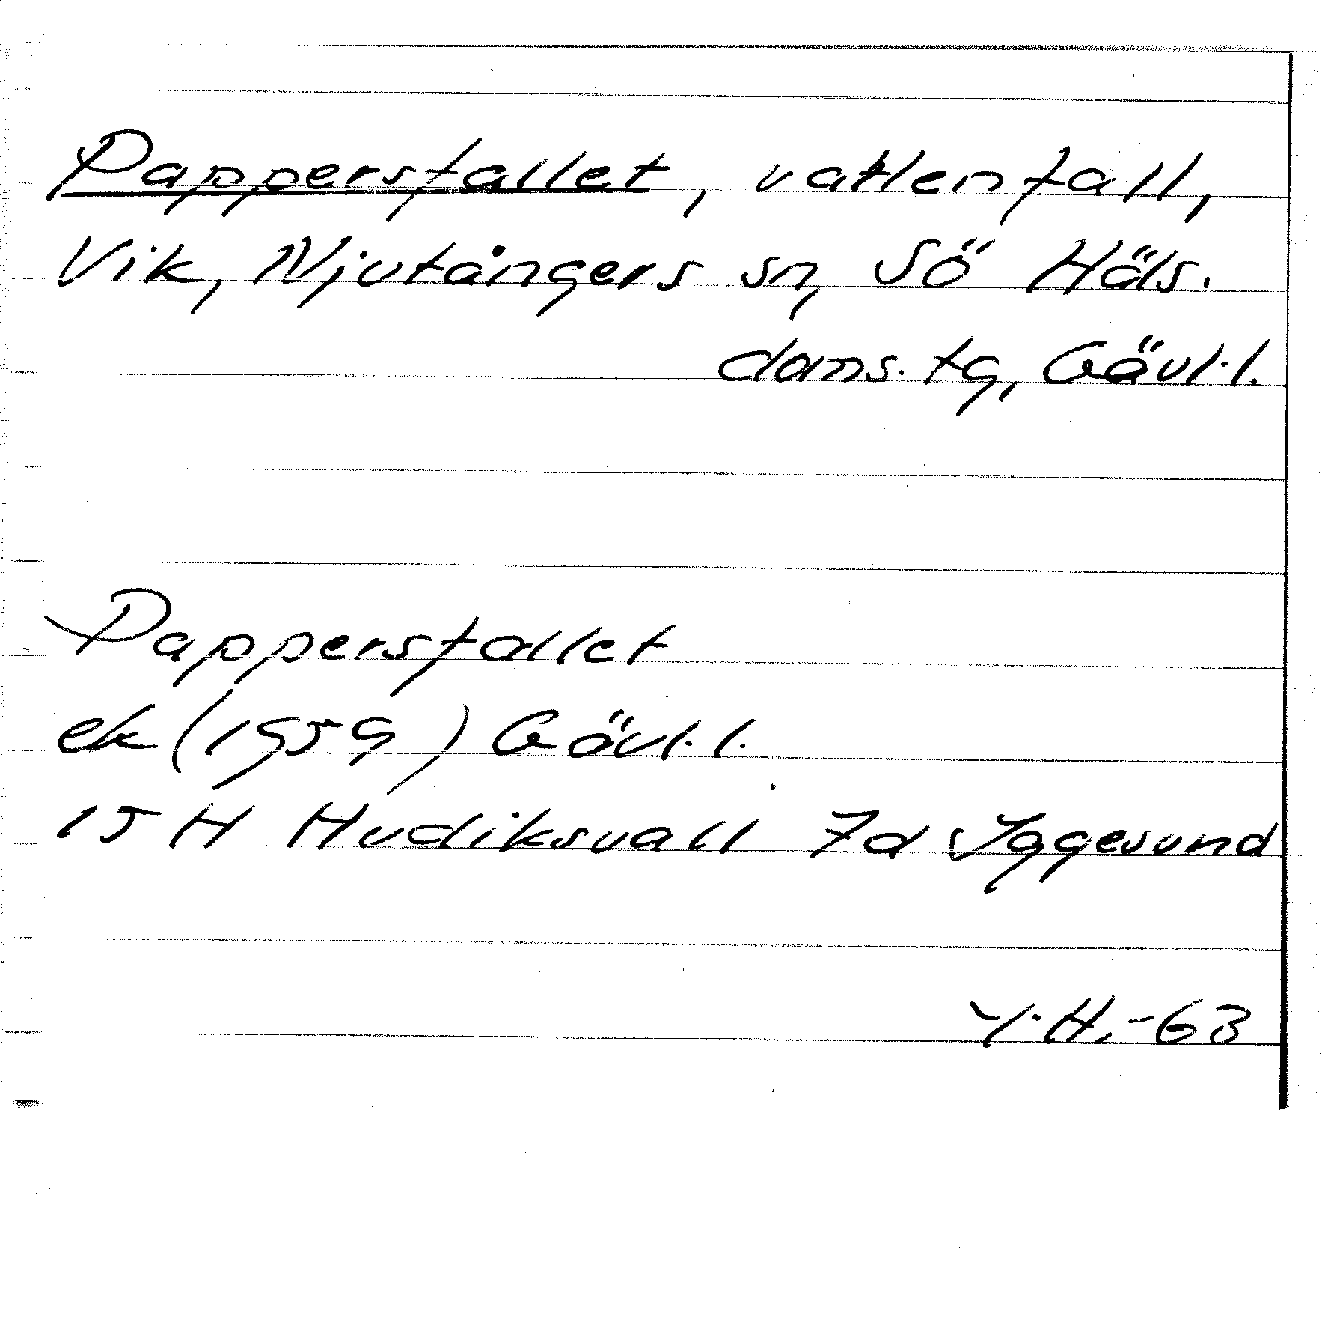 Pappersfallet, vattenfall,
Vik, Njutångers sn, Sö Häls.
doms. tg, Gävl. l.
Pappersfallet
ek (1959) Gävl. l.
15 H Hudiksvall 7d Iggesund
Y. H. -63